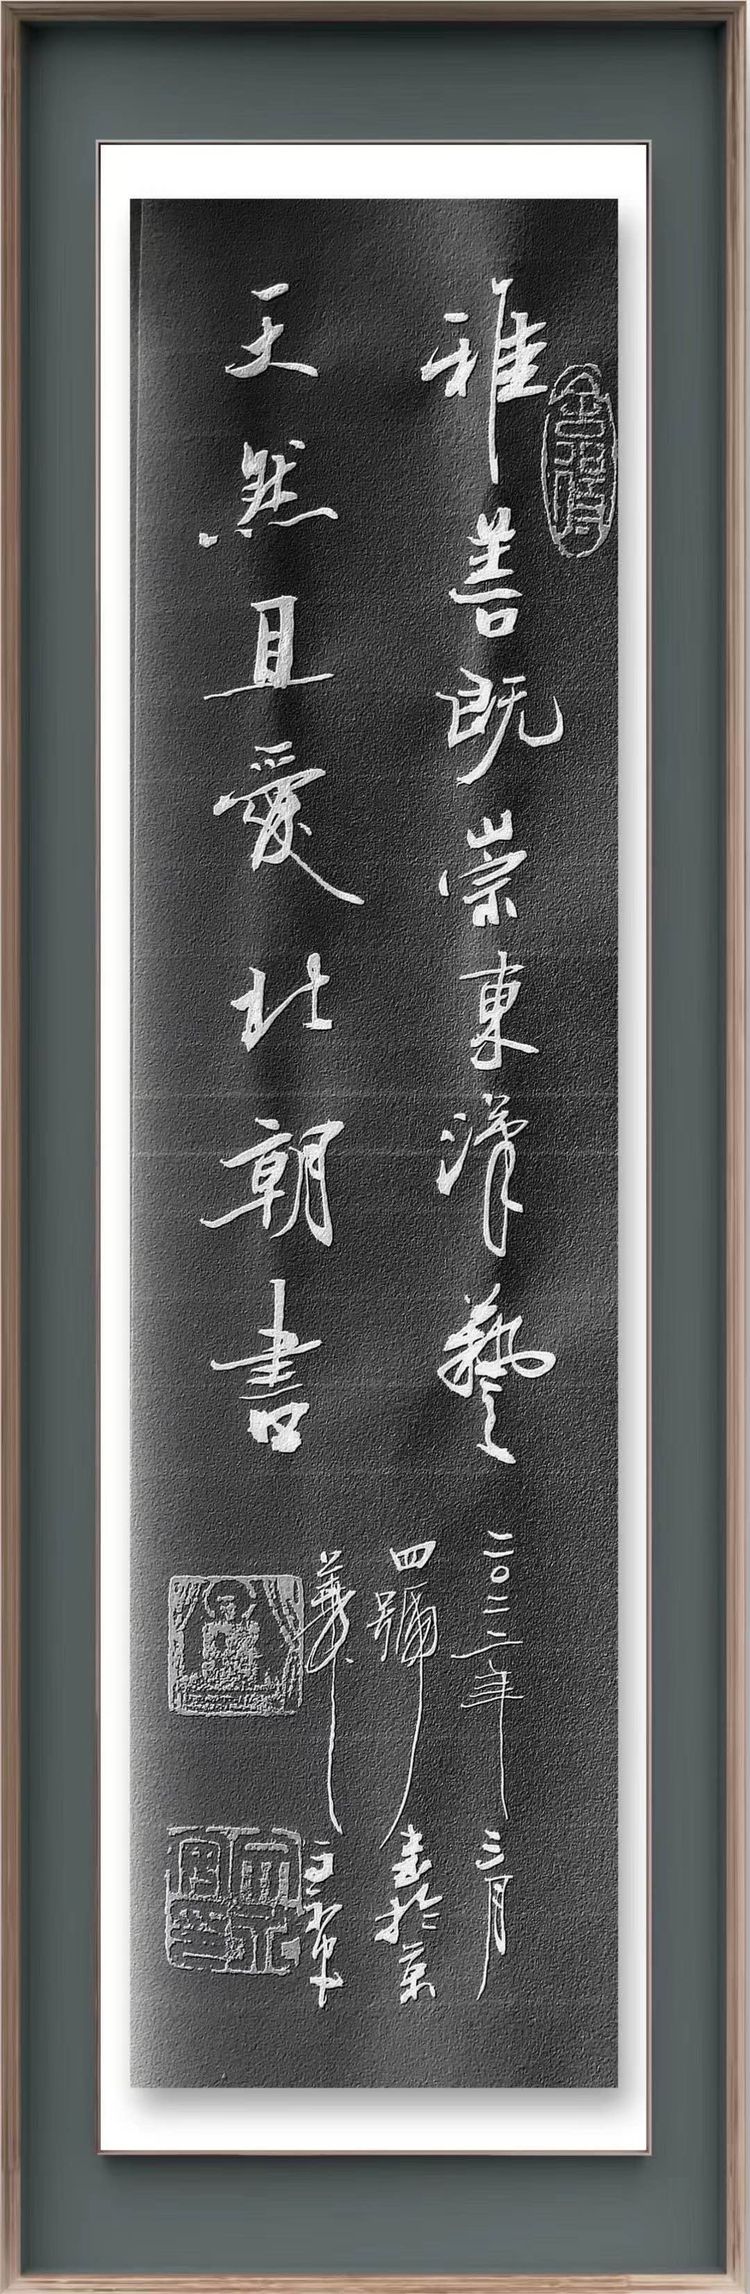 雅善既崇東漢藝
天然且愛北朝書
二〇二二年三月
四號書於京
華 王軍